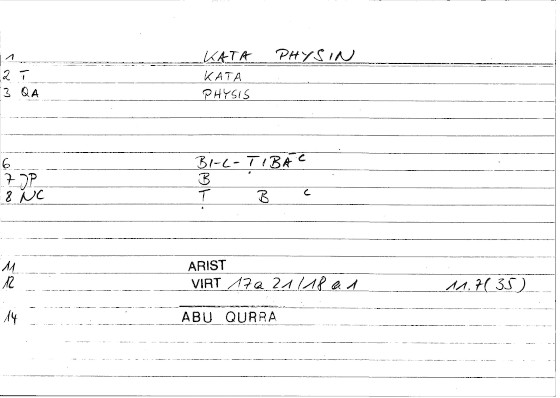 1 KATA PHYSIN
2 T KATA
3 QA PHYSIS
6 BI-L-ṬIBĀᶜ
7 JP B
8 NC Ṭ B ᶜ
11 ARIST
12 VIRT 17a21/18a1 11.7(35)
14 ABU QURRA